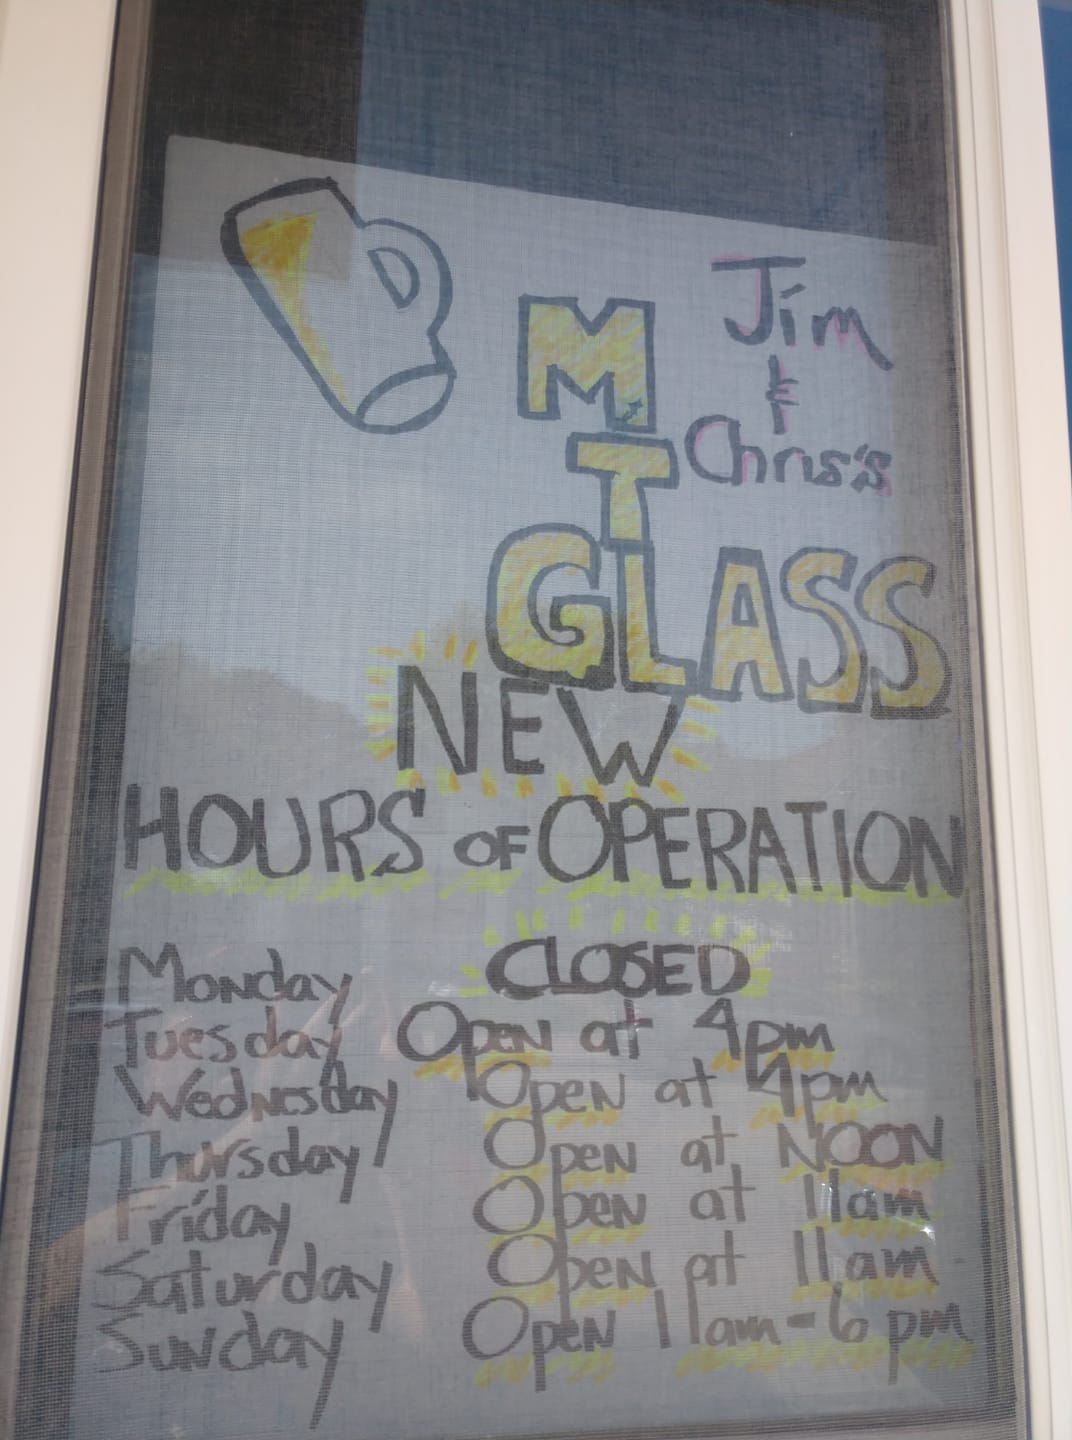 Jim
&
Chris's
M
T
GLASS
NEW
HOURS OF OPERATION
Monday CLOSED
Tuesday Open at 4pm
Wednesday Open at 4pm
Thursday Open at NOON
Friday Open at 11am
Saturday Open at 11am
Sunday Open 11am-6pm